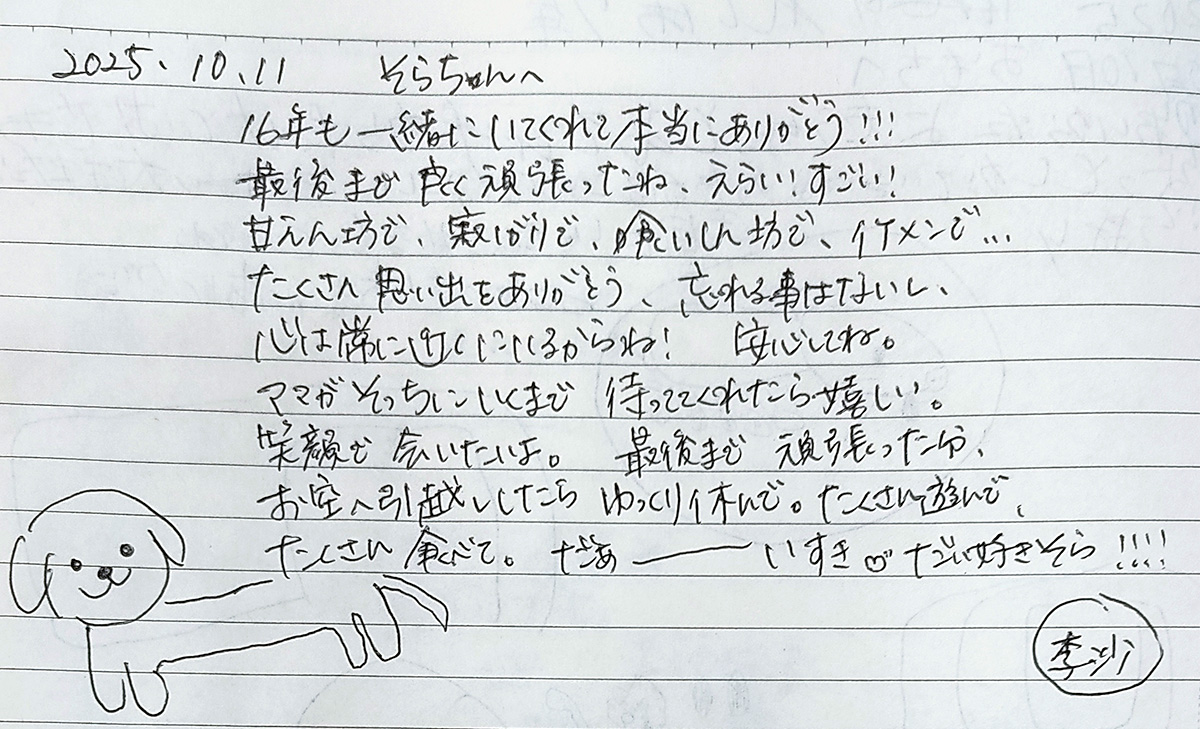 2025.10.11 そらちゃんへ
16年も一緒にいてくれて本当にありがとう!!!
最後まで良く頑張ったね、えらい!すごい!
甘えん坊で、寂しがりで、食いしん坊で、イケメンで...
たくさん思い出をありがとう、忘れる事はないし、
心は常に近くにいるからね! 安心してね。
ママがそっちにいくまで 待っててくれたら嬉しい。
笑顔で会いたいよ。 最後まで 頑張った分、
お空へ引越ししたら ゆっくり休んで。たくさん遊んで、
たくさん食べて。 だぁ――いすき♡だい好きそら!!!!
李沙